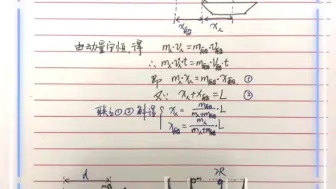 x船 x人
由动量守恒,得 m人v人=m船v船
∴ m人v人t=m船v船t
即 m人x人=m船x船 ①
又∵ x人+x船=L ②
联立①②解得 { x人=m船/(m人+m船)·L
x船=m人/(m人+m船)·L
d
2R